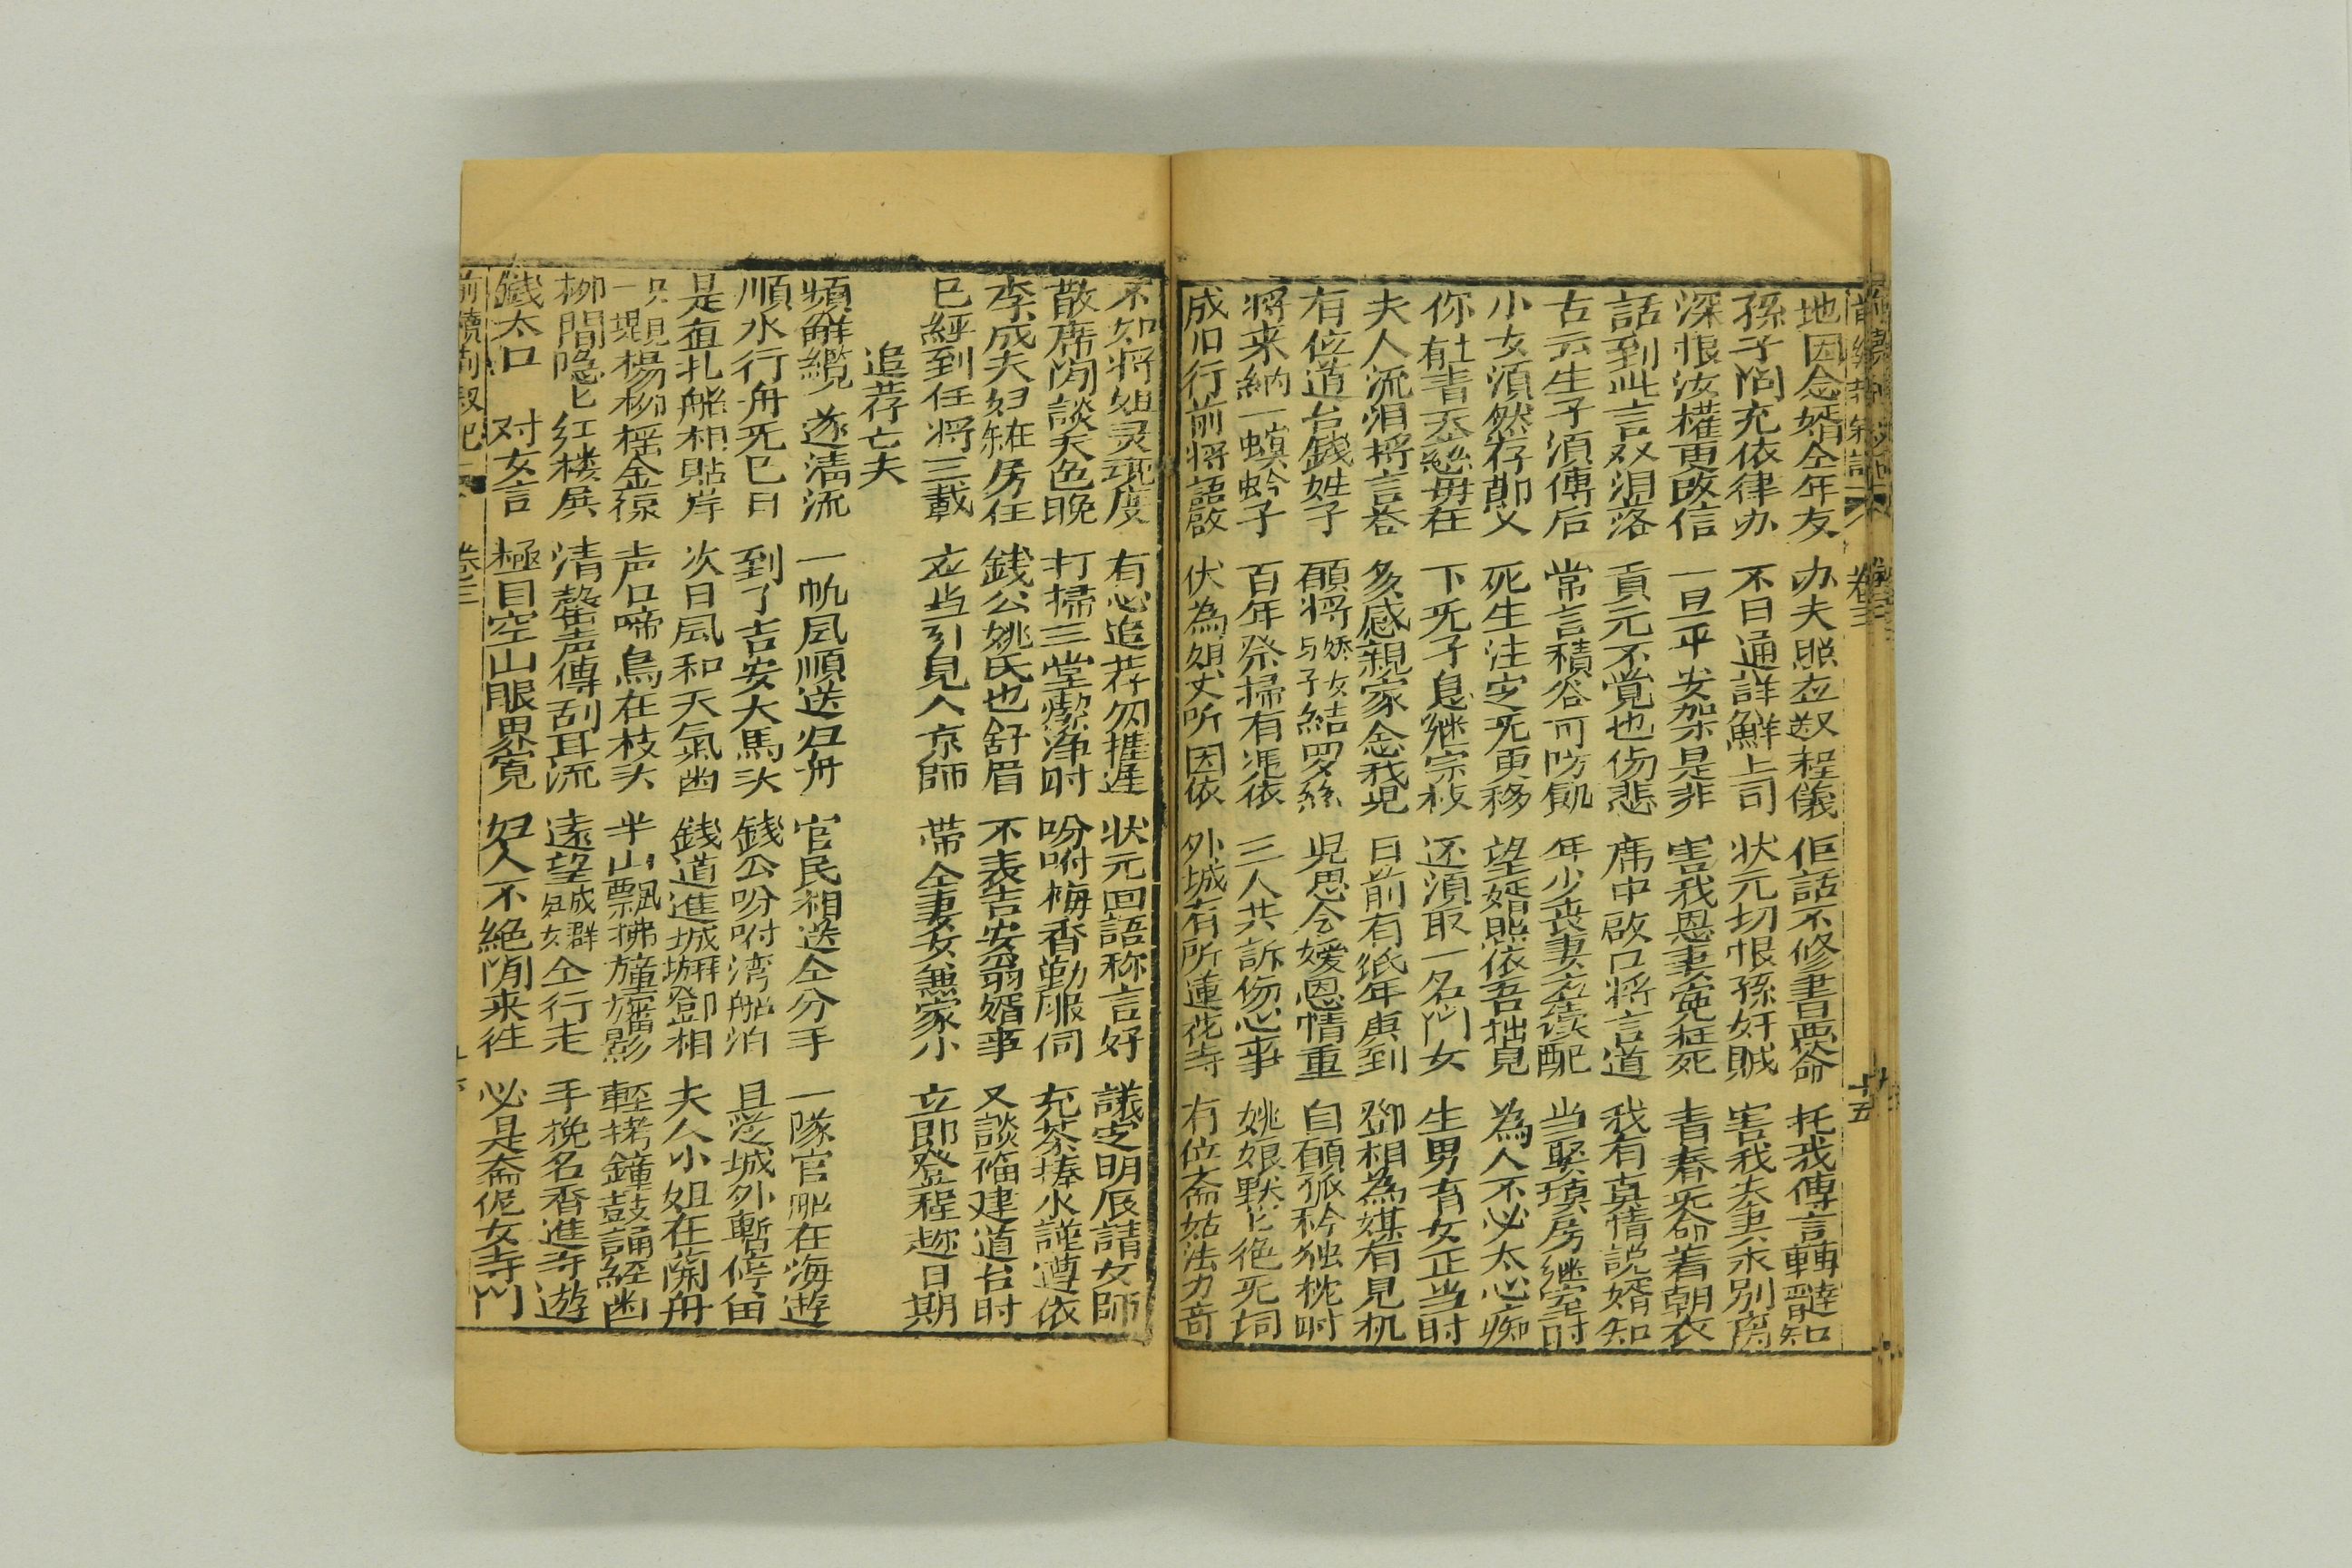 地因念婿仝年友 办夫照应奴程儀 佢話不修書要命 托我傳言轉達知
孫子问充依律办 不日通詳鮮上司 状元切恨孫奸賊 害我夫妻永别离
深恨汝權更改信 一旦平安架是非 害我恩妻寃枉死 青春死命着朝衣
話到此言双泪落 貢元不覚也伤悲 席中啟口将言道 我有真情説婿知
古云生子須傳后 常言積谷可防飢 年少丧妻应续配 当娶填房継室时
小女須然存节义 死生注定死更移 望婿照依吾拙見 為人不必太心痴
你在青 下死子息继宗枝 还須取一名门女 生男育女正当时
夫人流泪将言答 多感親家念我児 日前有紙年庚到 鄧相為媒有見机
有位道台錢姓子 願将娇女与子結罗絲 児思仝嫒恩情重 自願孤衾独枕时
将来納一螟蛉子 百年祭掃有凴依 三人共訴伤心事 姚娘默匕绝死词
成旧行前将語啟 伏為姐丈听因依 外城有所蓮花寺 有位斎姑法力奇
卷三
十五
不如将姐灵魂度 有心追荐勿推遲 状元回語称言好 議定明辰請女師
散席闲談天色晚 打掃三堂潔净时 吩咐梅香勤服伺 充茶捧水謹遵依
李成夫妇在房住 銭公姚氏也舒眉 不表吉安翁婿事 又談福建道台时
已經到任将三載 应当引見入京師 帯仝妻女兼家小 立即登程趂日期
追荐亡夫
頻解纜 遂清流 一帆風順送归舟 官民相送仝分手 一隊官船在海遊
順水行舟死已日 到了吉安大馬头 錢公吩咐湾船泊 且茫城外暫停留
是 扎船相貼岸 次日風和天氣幽 錢道進城拜鄧相 夫人小姐在蘭舟
只見一堤楊柳摇金線 声口啼鳥在枝头 半山飄拂幢旛影 輕拷鐘鼓誦經幽
柳間隐匕红楼展 清磬声傳刮耳流 遠望城群仝行走 手挽名香進寺遊
錢太口 对女言 極目空山眼界寛 妇人不絕闲来往 必是斎伲女寺门
卷三